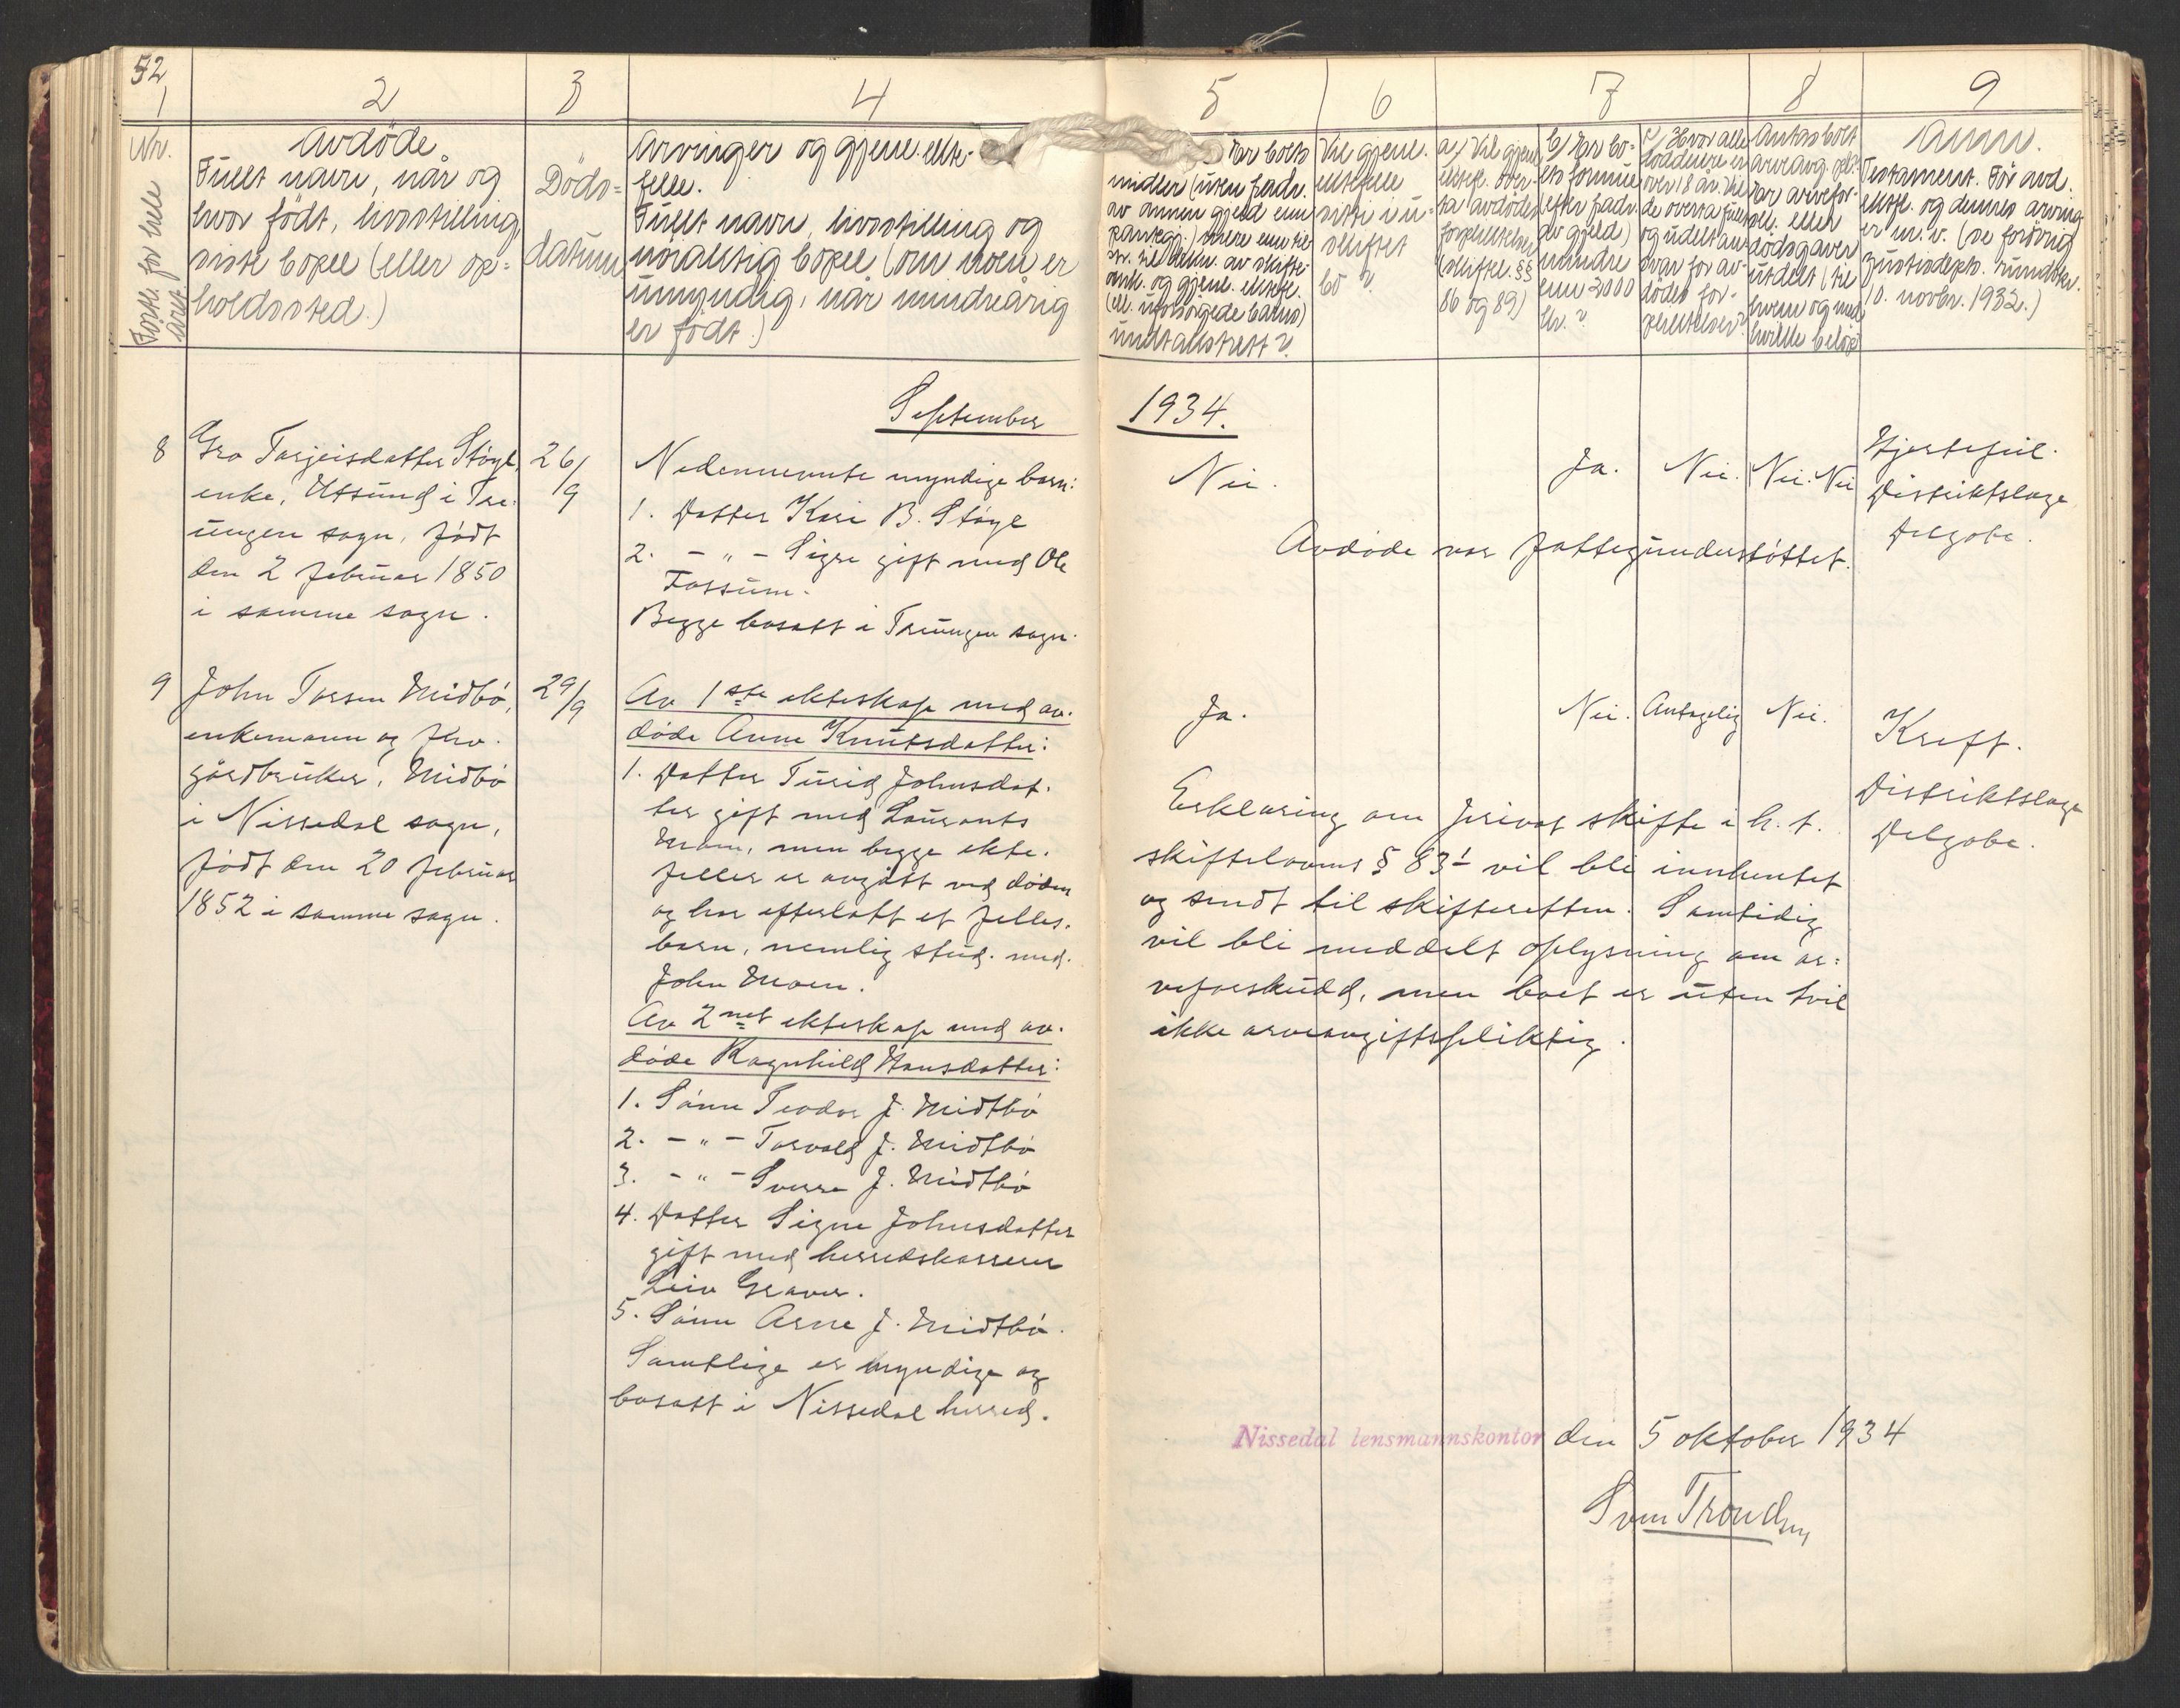 52
1
2
3
4
5
6
7
8
9
Nr.
Fortl. for hele
året
Avdöde
Fullt navn, når og
hvor födt, livsstilling,
siste bopel (eller op-
holdssted.)
Döds-
datum
Arvinger og gjenl. ekte-
felle.
Fullt navn, livsstilling og
nöiaktig bopel (om noen er
umyndig, når mindreårig
er födt.)
Har boets
midler (uten fradr.
av annen gjeld enn
pantegj.) mere enn til-
str. til dekn. av skifte-
omk. og gjenl. ektef.
(el. uforsörgede barns)
undtaksrett?
Vil gjenl.
ektefelle
sitte i u-
skiftet
bo?
a) Vil gjenl.
ektef. over-
ta avdödes
forpliktelser
(skiftel. §§
86 og 89)
b) Har bo-
ets formue
efter fradr.
av gjeld)
mindre
enn 2000
kr.?
c) Hvor alle
loddeiere er
over 18 år. Vil
de overta fullt
og udelt an-
svar for av-
dödes for-
pliktelser?
Antas boet
arveavg. pl.?
Har arvefor-
sk. eller
dödsgaver
utdelt (til
hvem og med
hvilke belöp
Anm.
Testament. För avd.
ektef. og dennes arving-
er m. v. (se forövrig
Justisdepts. rundskr.
10. novbr. 1932.)
September
1934.
8
Gro Tarjeisdatter Stöyl,
enke, Utsund i Tre-
ungen sogn, födt
den 2 februar 1850
i samme sogn.
26/9
Nedennevnte myndige barn:
1. Datter Kari B. Stöyl
2. - " - Signe gift med Ole
Fossum.
Begge bosatt i Treungen sogn.
Nei.
Ja.
Nei.
Nei. Nei
Hjertefeil.
Distriktslæge
Delgobe.
Avdöde var fattigunderstöttet.
9
John Torsen Midbö,
enkemann og fhv.
gårdbruker, Midbö
i Nissedal sogn,
födt den 20 februar
1852 i samme sogn.
29/9
Av 1ste ekteskap med av-
döde Anne Knutsdatter:
1. Datter Turid Johnsdat-
ter gift med Laurants
Moen, men begge ekte-
feller er avgått ved döden
og har efterlatt et felles-
barn, nemlig stud. med.
John Moen.
Av 2net ekteskap med av-
döde Ragnhild Hansdatter:
1. Sönn Teodor J. Midtbö
2. - " - Torvald J. Midtbö
3. - " - Sverre J. Midtbö
4. Datter Signe Johnsdatter
gift med herredskasserer
Leiv Graver.
5. Sönn Arne J. Midtbö.
Samtlige er myndige og
bosatt i Nissedal herred.
Ja.
Nei.
Antagelig
Nei.
Kreft.
Distriktslæge
Delgobe.
Erklæring om privat skifte i h. t.
skiftelovens § 83 vil bli innhentet
og sendt til skifteretten. Samtidig
vil bli meddelt oplysning om ar-
veforskudd, men boet er uten tvil
ikke arveavgiftspliktig.
Nissedal lensmannskontor den 5 oktober 1934
Sven Trondsen